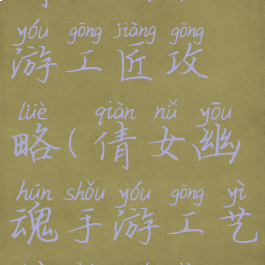 yóu gōng jiàng gōng
游工匠攻
lüè qiàn nǚ yōu
略(倩女幽
hún shǒu yóu gōng yì
魂手游工艺